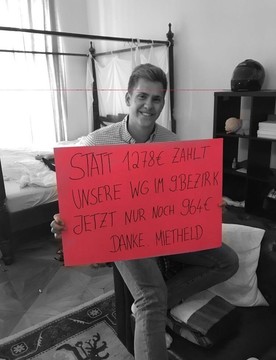 STATT 1278€ ZAHLT
UNSERE WG IM 9.BEZIRK
JETZT NUR NOCH 964€
DANKE MIETHELD